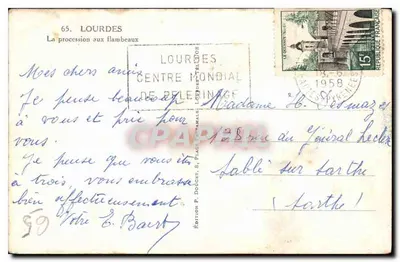 65. LOURDES
La procession aux flambeaux
LOURDES
CENTRE MONDIAL
DE PELERINAGE
1958
15F
REPUBLIQUE FRANÇAISE
Mes chers amis
Je pense beaucoup
à vous et prie pour
vous.
Je pense que vous êtes
à trois, vous embrasse
bien affectueusement
Votre E. Baert
59
Madame H.
rue du Général Leclerc
Sablé sur Sarthe
Sarthe!